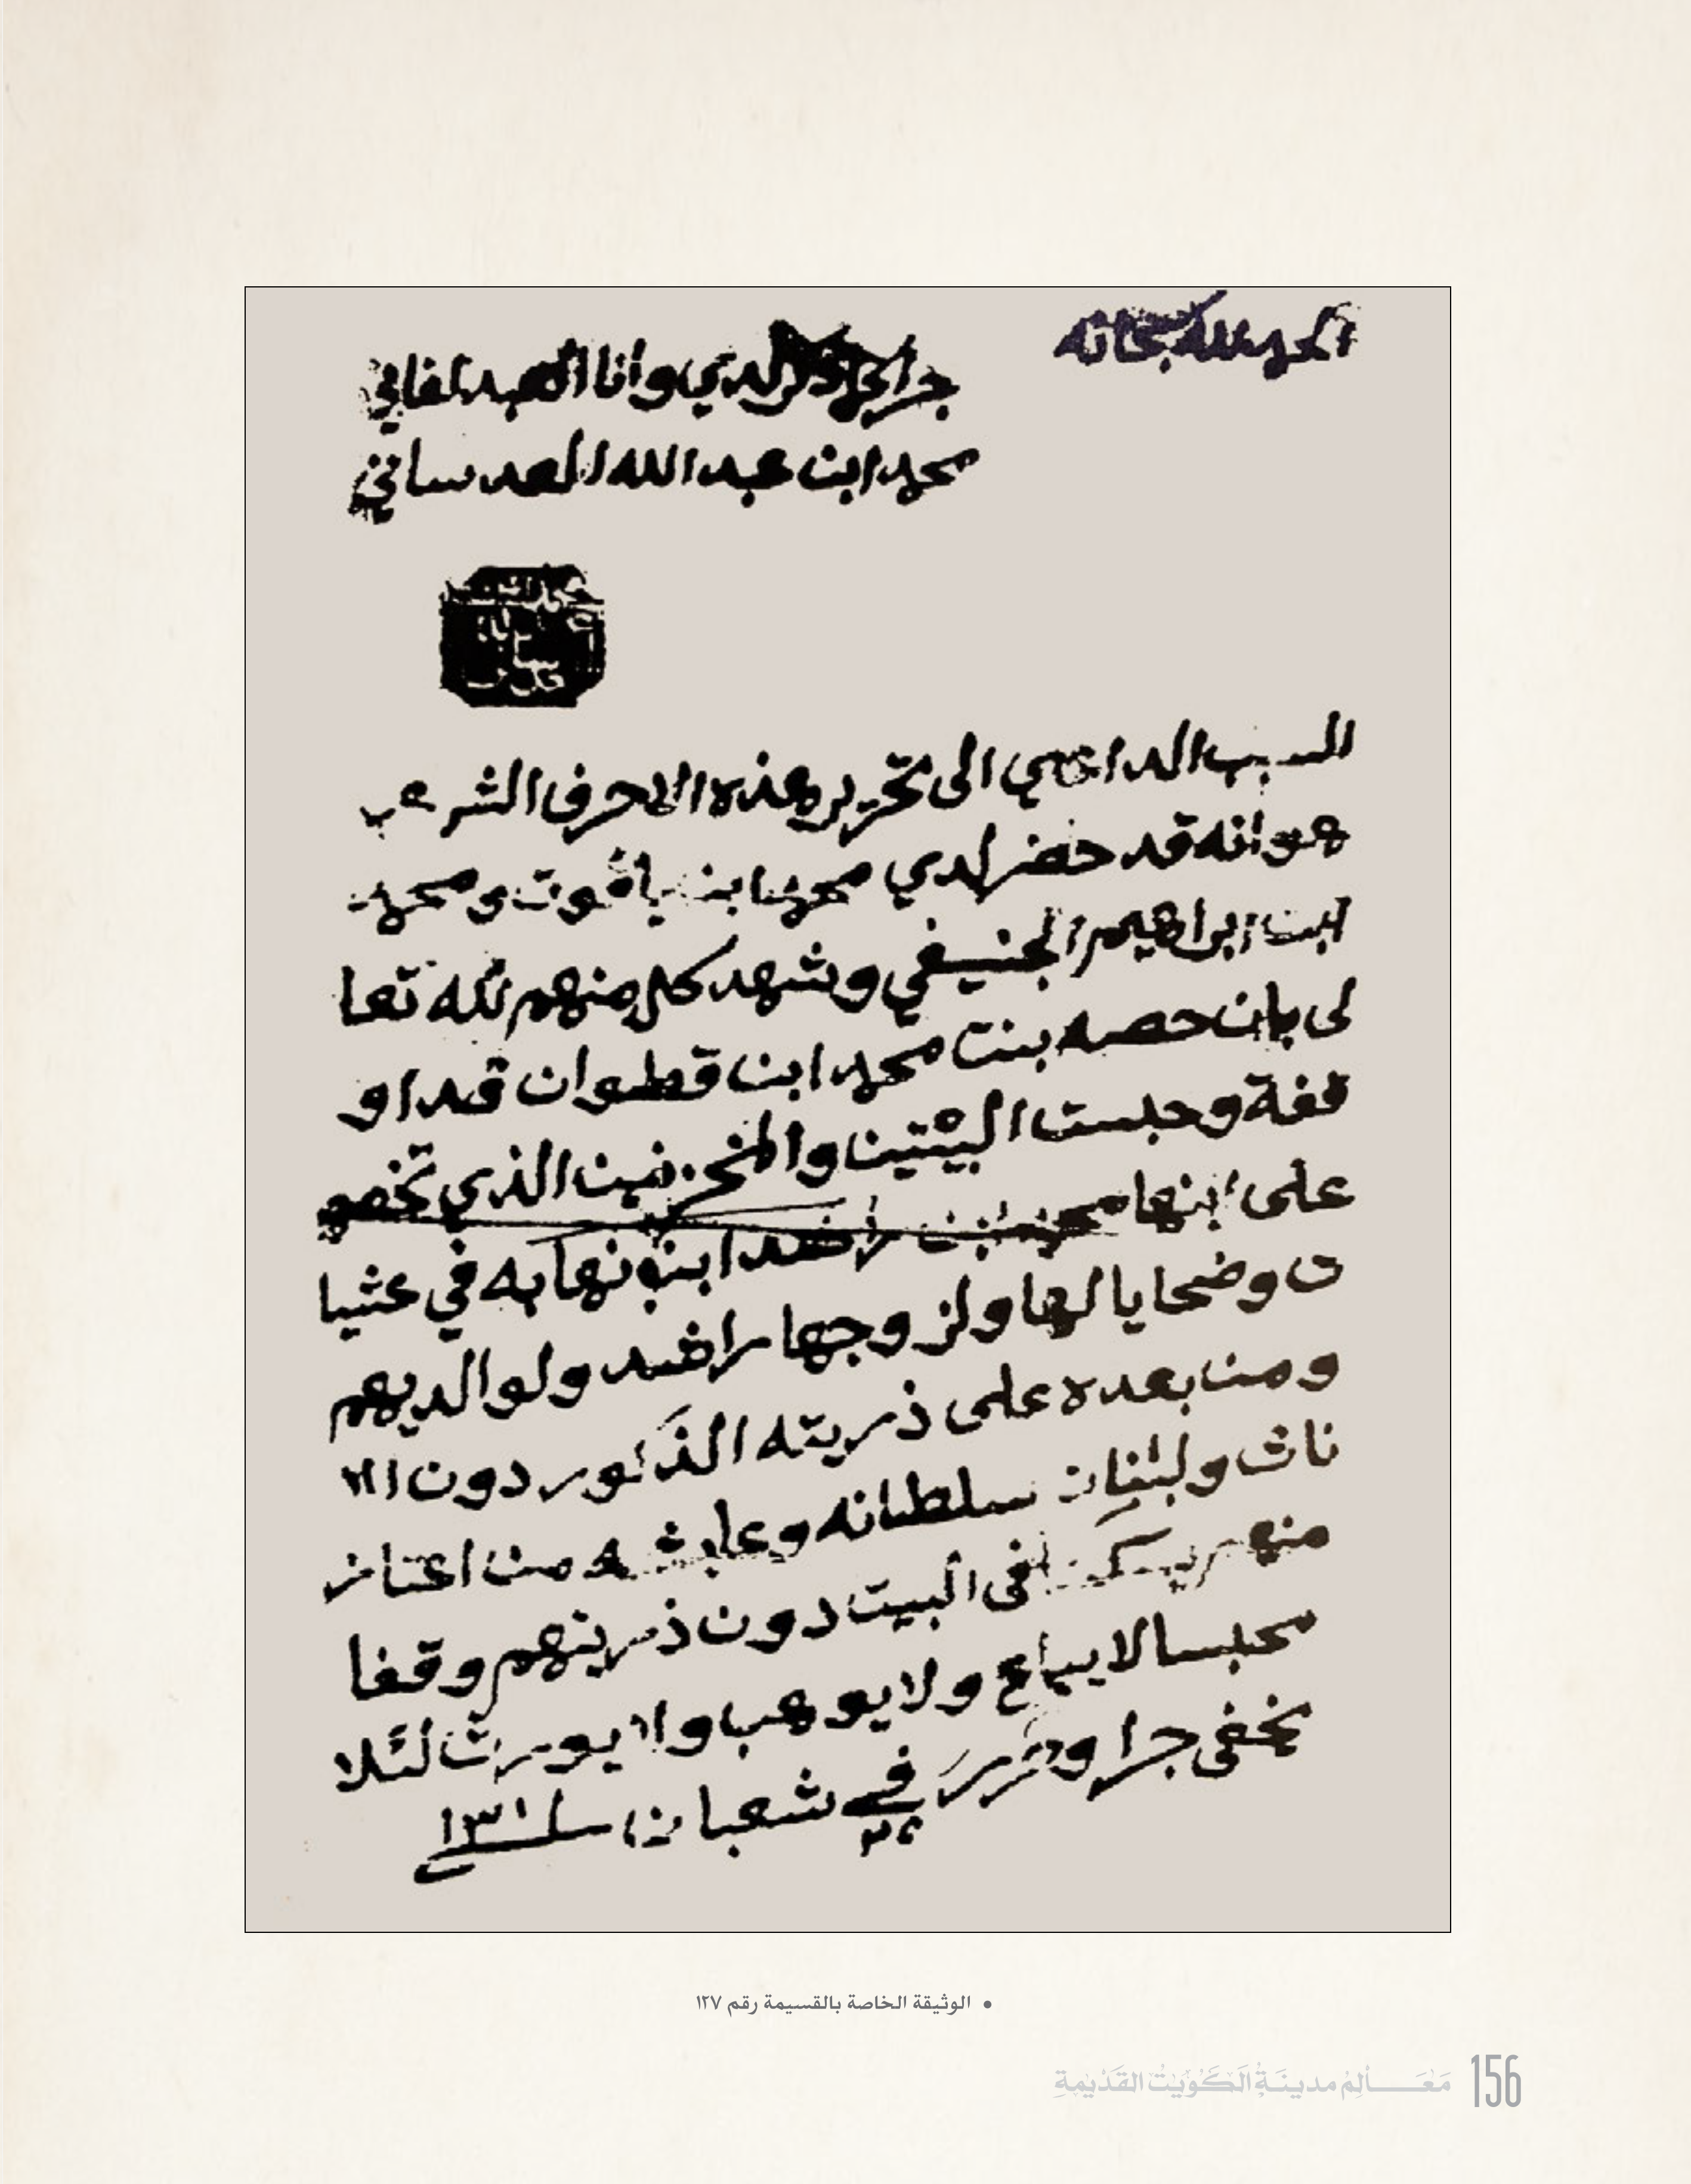 الحمد لله سبحانه
جرا لدي وانا العبد الفاني
محمد ابن عبد الله العدساني
السبب الداعي الى تحرير هذه الاحرف الشرعيه
هو انه قد حضر لدي محمد ابن ياقوت ومحمد
ابن ابراهيم الجنيفي وشهد كل منهم لله تعا
لى بان حصه بنت محمد ابن قطوان قد او
قفة وحبست البيتين والمخزنين الذي تخصهم
على ابنها محمد ابن راشد ابن نهابه في عشيا
ت وضحايا لها ولزوجها راشد ولوالديهم
ومن بعده على ذريته الذكور دون الا
ناث ولبنات سلطانه وعايشه من اعتاز
منهم يسكن في البيت دون ذريتهم وقفا
محبسا لا يباع ولا يوهب ولا يورث لئلا
يخفى جرا وحرر في شعبان سنة ١٣١٠
• الوثيقة الخاصة بالقسيمة رقم ١٢٧
مَعَـــالِمُ مدينَةِ الكُوَيْتُ القَدْيمةِ 156